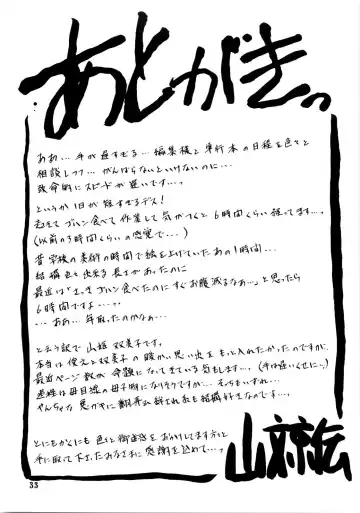 あとがきっ
ああ…手が遅すぎる…編集様と単行本の日程を色々と
相談しつつ…がんばらないといけないのに…
致命的にスピードが遅いです…っ
というか1日が短すぎるデス!
起きてゴハン食べて作業して気がつくと6時間くらい経ってます…っ
(以前の3時間くらいの感覚で…)
昔学校の美術の時間で絵を上げていたあの1時間。
結構色々出来る長さがあったのに
最近は「さっきゴハン食べたのにすぐお腹減るなぁ…」と思ったら
6時間ですよ…っ
…ああ…年取ったのかなぁ…
と云う訳で山姫双美子です。
本当は俊之と双美子の暖かい思い出をもっと入れたかったのですが、
最近ページ数が命題になってきている気もします…。(手は遅いくせに…)
逆姓は母目線の母子物になりそうですが…。そちらもいずれ…。
やんちゃな悪ガキに翻弄されるお母さんも結構好きなのです…。
とにもかくにも色々と御迷惑をおかけしてます方々と
手に取って下さったみなさまに感謝を込めて…っ
33